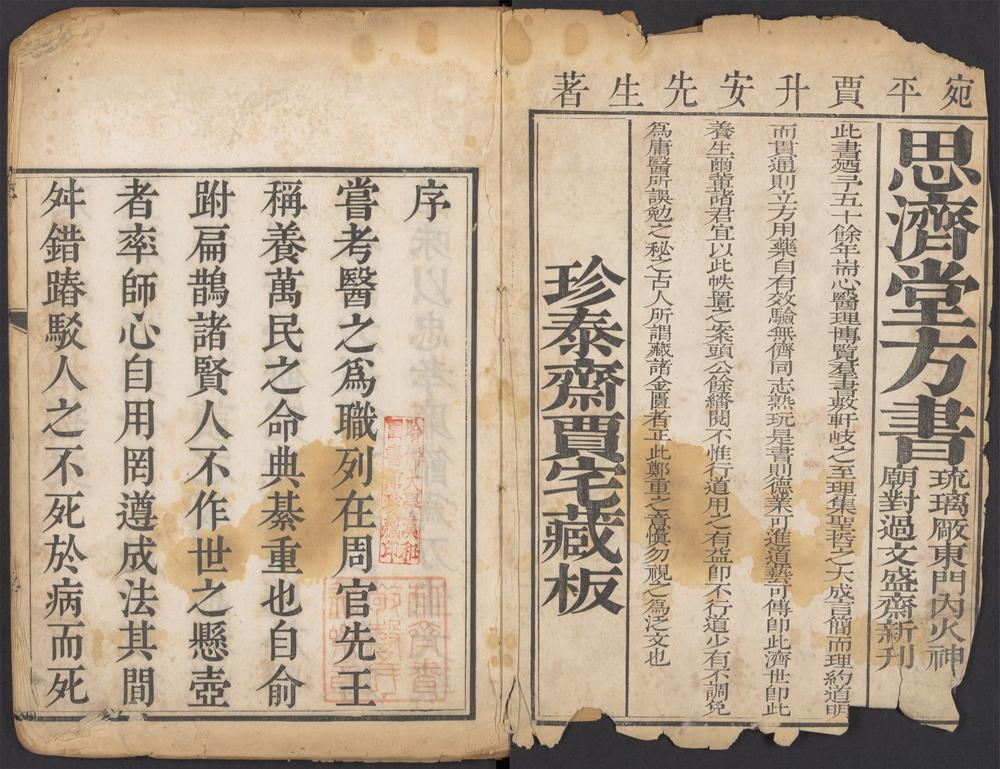 宛平賈升安先生著
思濟堂方書
琉璃厰東門內火神
廟對過文盛齋新刊
此書廼予五十餘年耑心醫理博覽羣書敷軒岐之至理集聖哲之大成言簡而理約道明
而貫通則立方用藥自有效驗無儕同志熟玩是書則德業可進道藝可傳卽此濟世卽此
養生爾輩諸君宜以此帙置之案頭公餘繙閱不惟行道用之有益卽不行道少有不調免
爲庸醫所誤勉之秘之古人所謂藏諸金匱者正此鄭重之意愼勿視之爲泛文也
珍泰齋賈宅藏板
序
嘗考醫之爲職列在周官先王
稱養萬民之命典綦重也自俞
跗扁鵲諸賢人不作世之懸壺
者率師心自用罔遵成法其間
舛錯踳駁人之不死於病而死